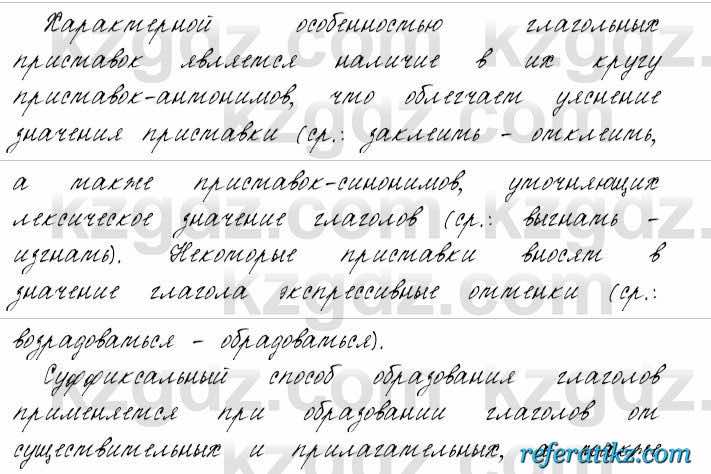 Характерной особенностью глагольных
приставок является наличие в их кругу
приставок-антонимов, что облегчает уяснение
значения приставки (ср.: заклеить - отклеить,
а также приставок-синонимов, уточняющих
лексическое значение глаголов (ср.: выгнать -
изгнать). Некоторые приставки вносят в
значение глагола экспрессивные оттенки (ср.:
возрадоваться - обрадоваться).
Суффиксальный способ образования глаголов
применяется при образовании глаголов от
существительных и прилагательных, а также
referatikz.com
kzgdz.com